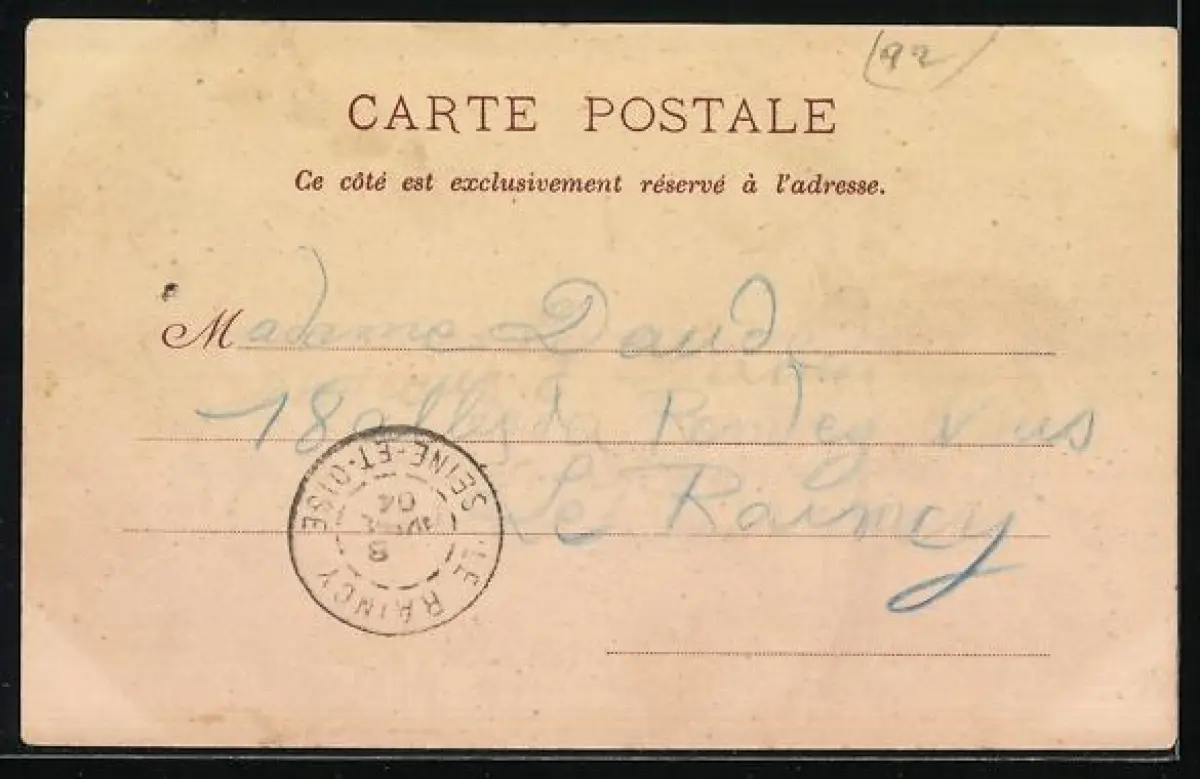 (92)
CARTE POSTALE
Ce côté est exclusivement réservé à l'adresse.
Madame Daudy
18 allée du Rendez Vous
Le Raincy
LE RAINCY
SEINE-ET-OISE
8
AVR
04